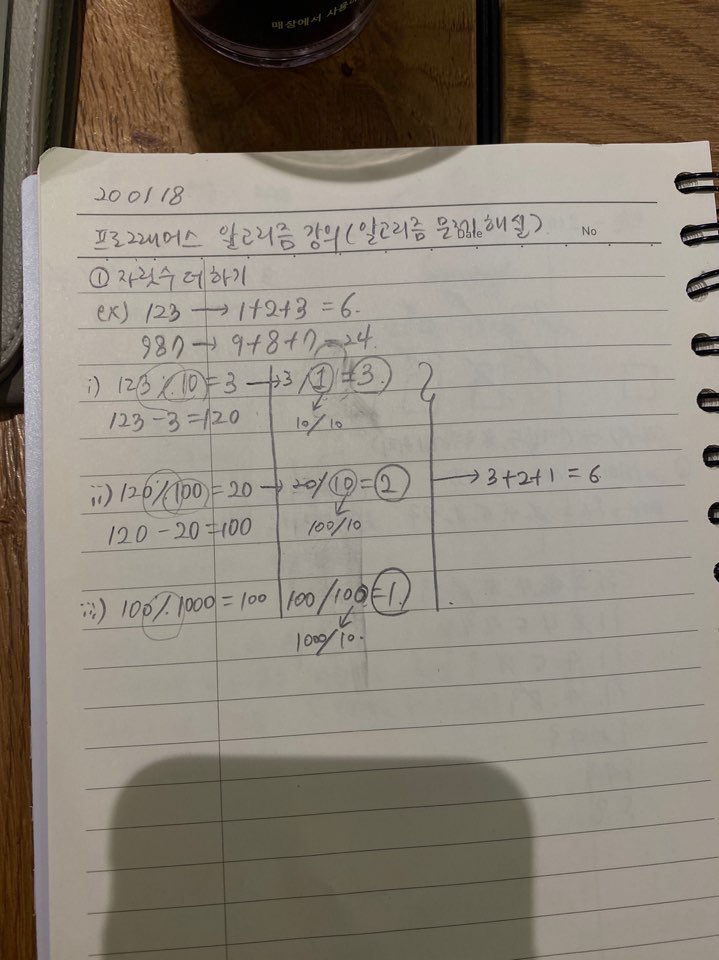 매장에서 사용
200118
프로그래머스 알고리즘 강의(알고리즘 문제 해설)
Date No
① 자릿수 더하기
ex) 123 → 1+2+3 = 6.
987 → 9+8+7 = 24.
i) 123 % 10 = 3 → 3/1 = 3.
123 - 3 = 120 10/10
ii) 120 % 100 = 20 → 20/10 = 2 → 3+2+1 = 6.
120 - 20 = 100 100/10
iii) 100 % 1000 = 100 100/100 = 1.
1000/10.